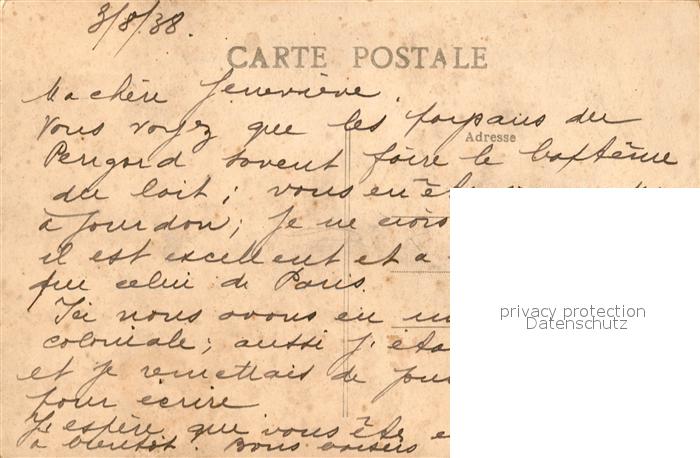 3/8/38.
CARTE POSTALE
Ma chère Geneviève,
Vous voyez que les paysans du
Adresse
Perigord savent faire le baptême
du lait ; vous
à Gourdon ; je ne crois
il est excellent et a
que celui de Paris.
Ici nous avons eu un
coloniale ; aussi j'éta
et je remettais de jour
pour écrire
J'espère que vous êtes e
a bientôt. Bons baisers
privacy protection
Datenschutz